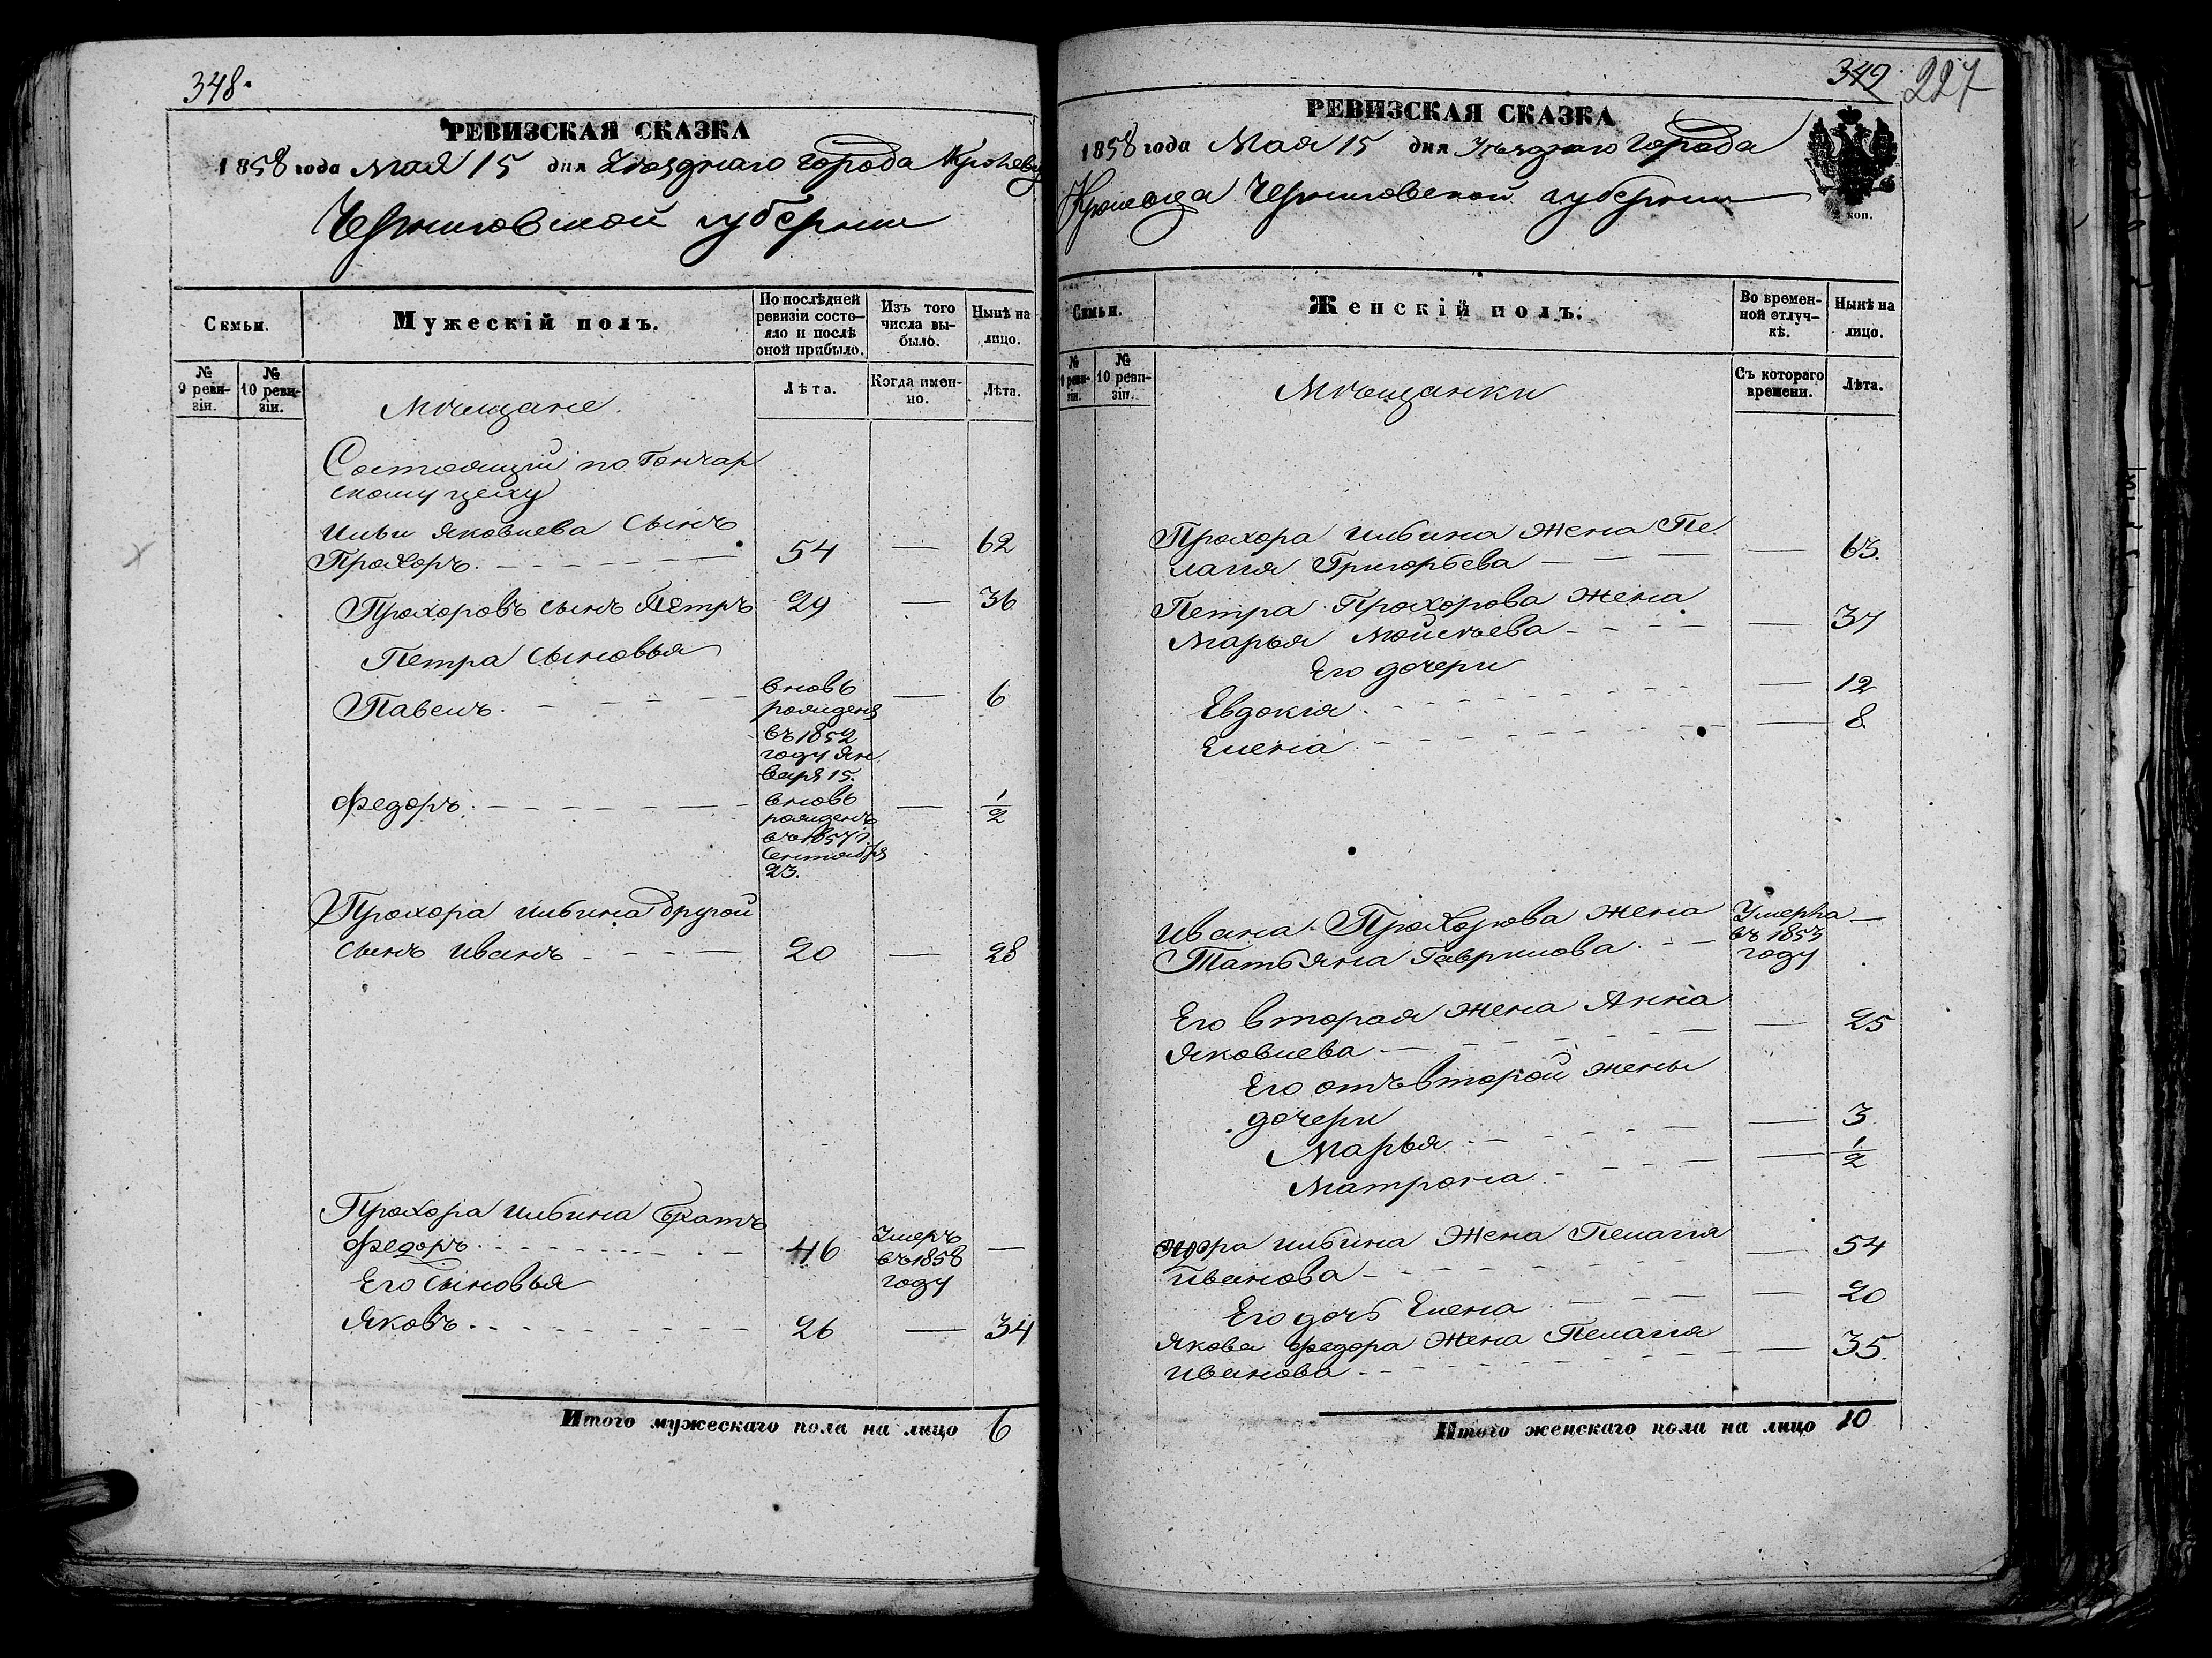 348.
РЕВИЗСКАЯ СКАЗКА
1858 года Мая 15 дня Уѣзднаго города Кролевца
Черниговской губерніи
Семьи.
Мужескій полъ.
По послѣдней ревизіи состояло и послѣ оной прибыло.
Изъ того числа выбыло.
Нынѣ на лицо.
№ 9 ревизіи.
№ 10 ревизіи.
Лѣта.
Когда именно.
Лѣта.
Мѣщане.
Состоящіи по Гончар
скому цеху
Ильи Яковлева сынъ
Прохоръ. 54 — 62
Прохоровъ сынъ Петръ 29 — 36
Петра сыновья
Павелъ. вновь — 6
рожденъ
въ 1852
году Ян
варя 15.
Федоръ. вновь — 1/2
рожденъ
въ 1857 г.
Сентября
23.
Прохора Ильина другой
сынъ Иванъ 20 — 28
Прохора Ильина братъ
Федоръ 46 Умеръ —
въ 1858
году
Его сыновья
Яковъ. 26 — 34
Итого мужескаго пола на лицо 6
349 227
РЕВИЗСКАЯ СКАЗКА
1858 года Мая 15 дня Уѣзднаго Города
Кролевца Черниговской губерніи
коп.
Семьи.
Женскій полъ.
Во временной отлучкѣ.
Нынѣ на лицо.
№ 9 ревизіи.
№ 10 ревизіи.
Съ котораго времени.
Лѣта.
Мѣщанки
Прохора Ильина жена Пе
лагія Григорьева — 63.
Петра Прохорова жена
Марья Мойсѣева — 37
Его дочери
Евдокія — 12
Елена — 8
Ивана Прохорова жена Умерла —
Татьяна Гаврилова въ 1853
году
Его вторая жена Анна
Яковлева — 25
Его отъ второй жены
дочери
Марья — 3
Матрона — 1/2
Федора Ильина жена Пелагія
Иванова — 54
Его дочь Елена — 20
Якова Федора жена Пелагія
Иванова — 35.
Итого женскаго пола на лицо 10